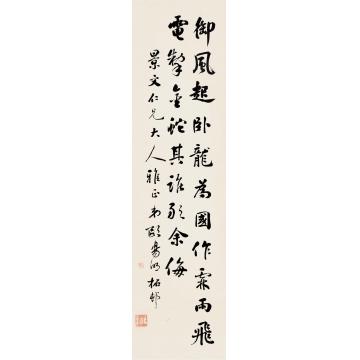 御風起卧龍為國作霖雨飛
電掣金蛇其誰敢余侮
景文仁兄大人雅正弟